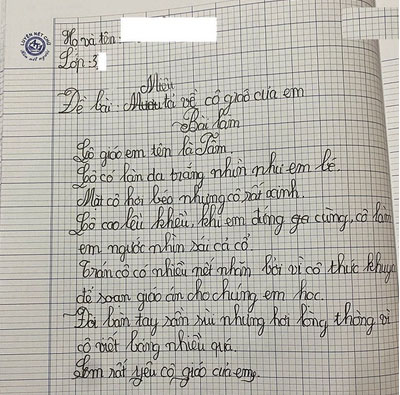 LUYỆN NÉT CHỮ
Họ và tên:
Lớp: 3
Miêu
Đề bài: tả về cô giáo của em
Bài làm
Cô giáo em tên là Tẩm.
Cô có làn da trắng nhìn như em bé.
Mặt cô hơi béo nhưng cô rất xinh.
Cô cao lều khều, khi em đứng ga cừng, cô làm
em ngước nhìn xái cả cổ.
Trán cô có nhiều nết nhăn bởi vì cô thức khuya
để soạn giáo án cho chúng em học.
Đôi bàn tay sần sùi nhưng hơi lòng thòng vì
cô viết bảng nhiều quá.
Em rất yêu cô giáo của em.